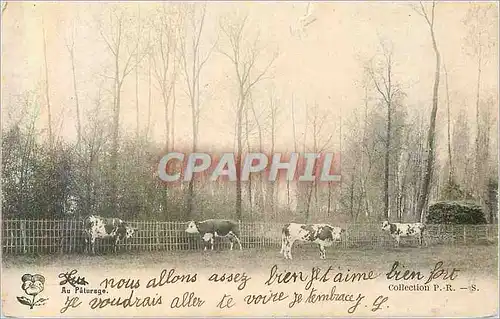 CPAPHIL
nous allons assez bien Je t'aime bien fort
Au Pâturage.
Collection P.-R. — S.
Je voudrais aller te voire Je t'embrace J. G.